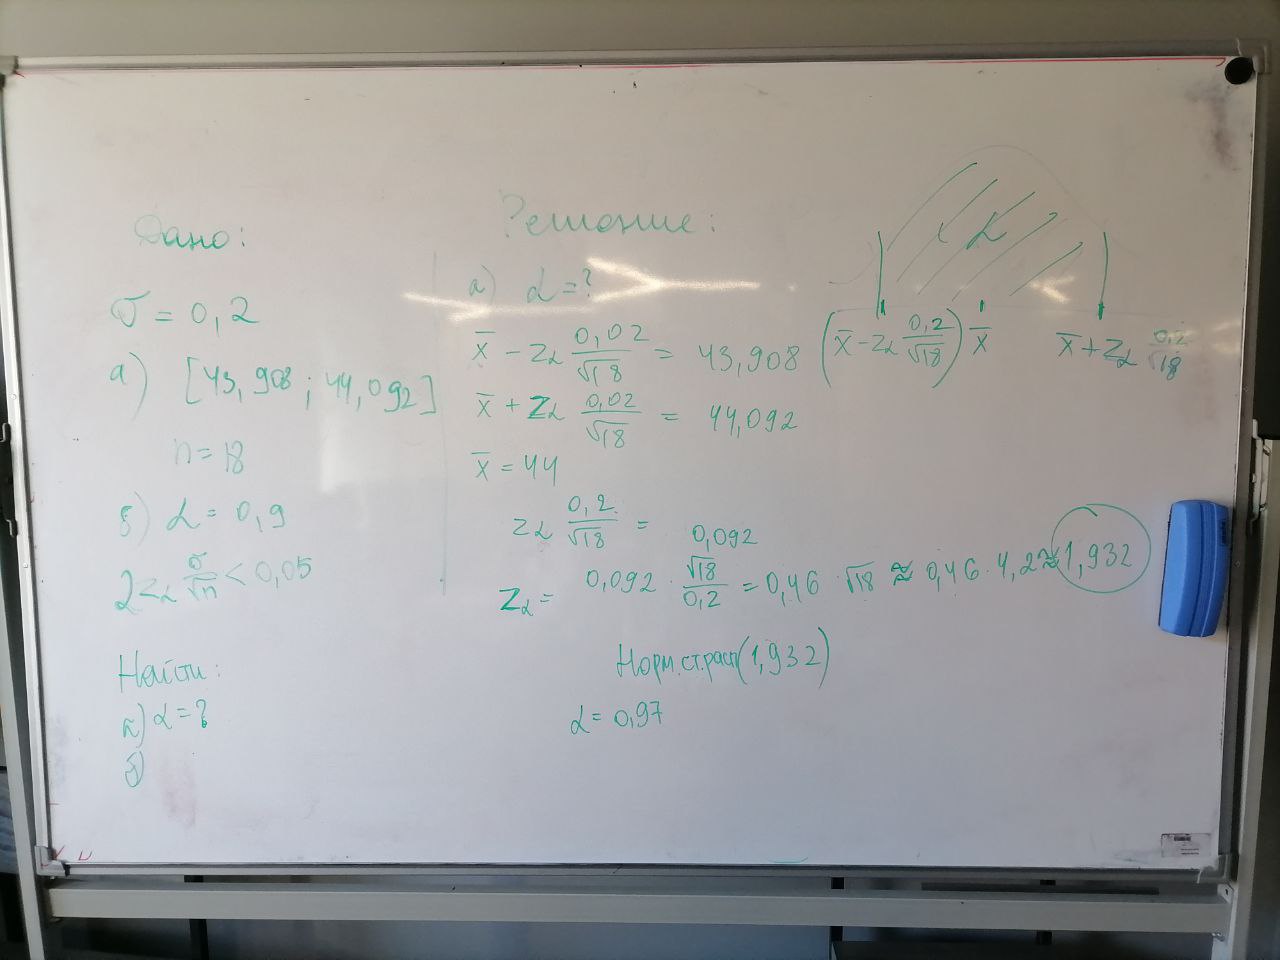 Дано:
σ = 0,2
а) [43,908 ; 44,092]
n = 18
б) α = 0,9
2 z_α σ/√n < 0,05
Найти:
а) α = ?
б)
Решение:
а) α = ?
x̄ − z_α 0,02/√18 = 43,908
x̄ + z_α 0,02/√18 = 44,092
x̄ = 44
z_α 0,2/√18 = 0,092
z_α = 0,092 · √18/0,2 = 0,46 √18 ≈ 0,46 · 4,2 ≈ 1,932
Норм.ст.расп(1,932)
α = 0,97
α
(x̄ − z_α 0,2/√18) x̄ x̄ + z_α 0,2/√18